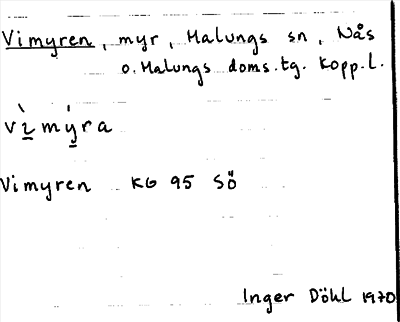 Vimyren, myr, Malungs sn, Nås
o. Malungs doms.tg. Kopp.l.
vì̠mý̠ra
Vimyren KG 95 SÖ
Inger Döhl 1970